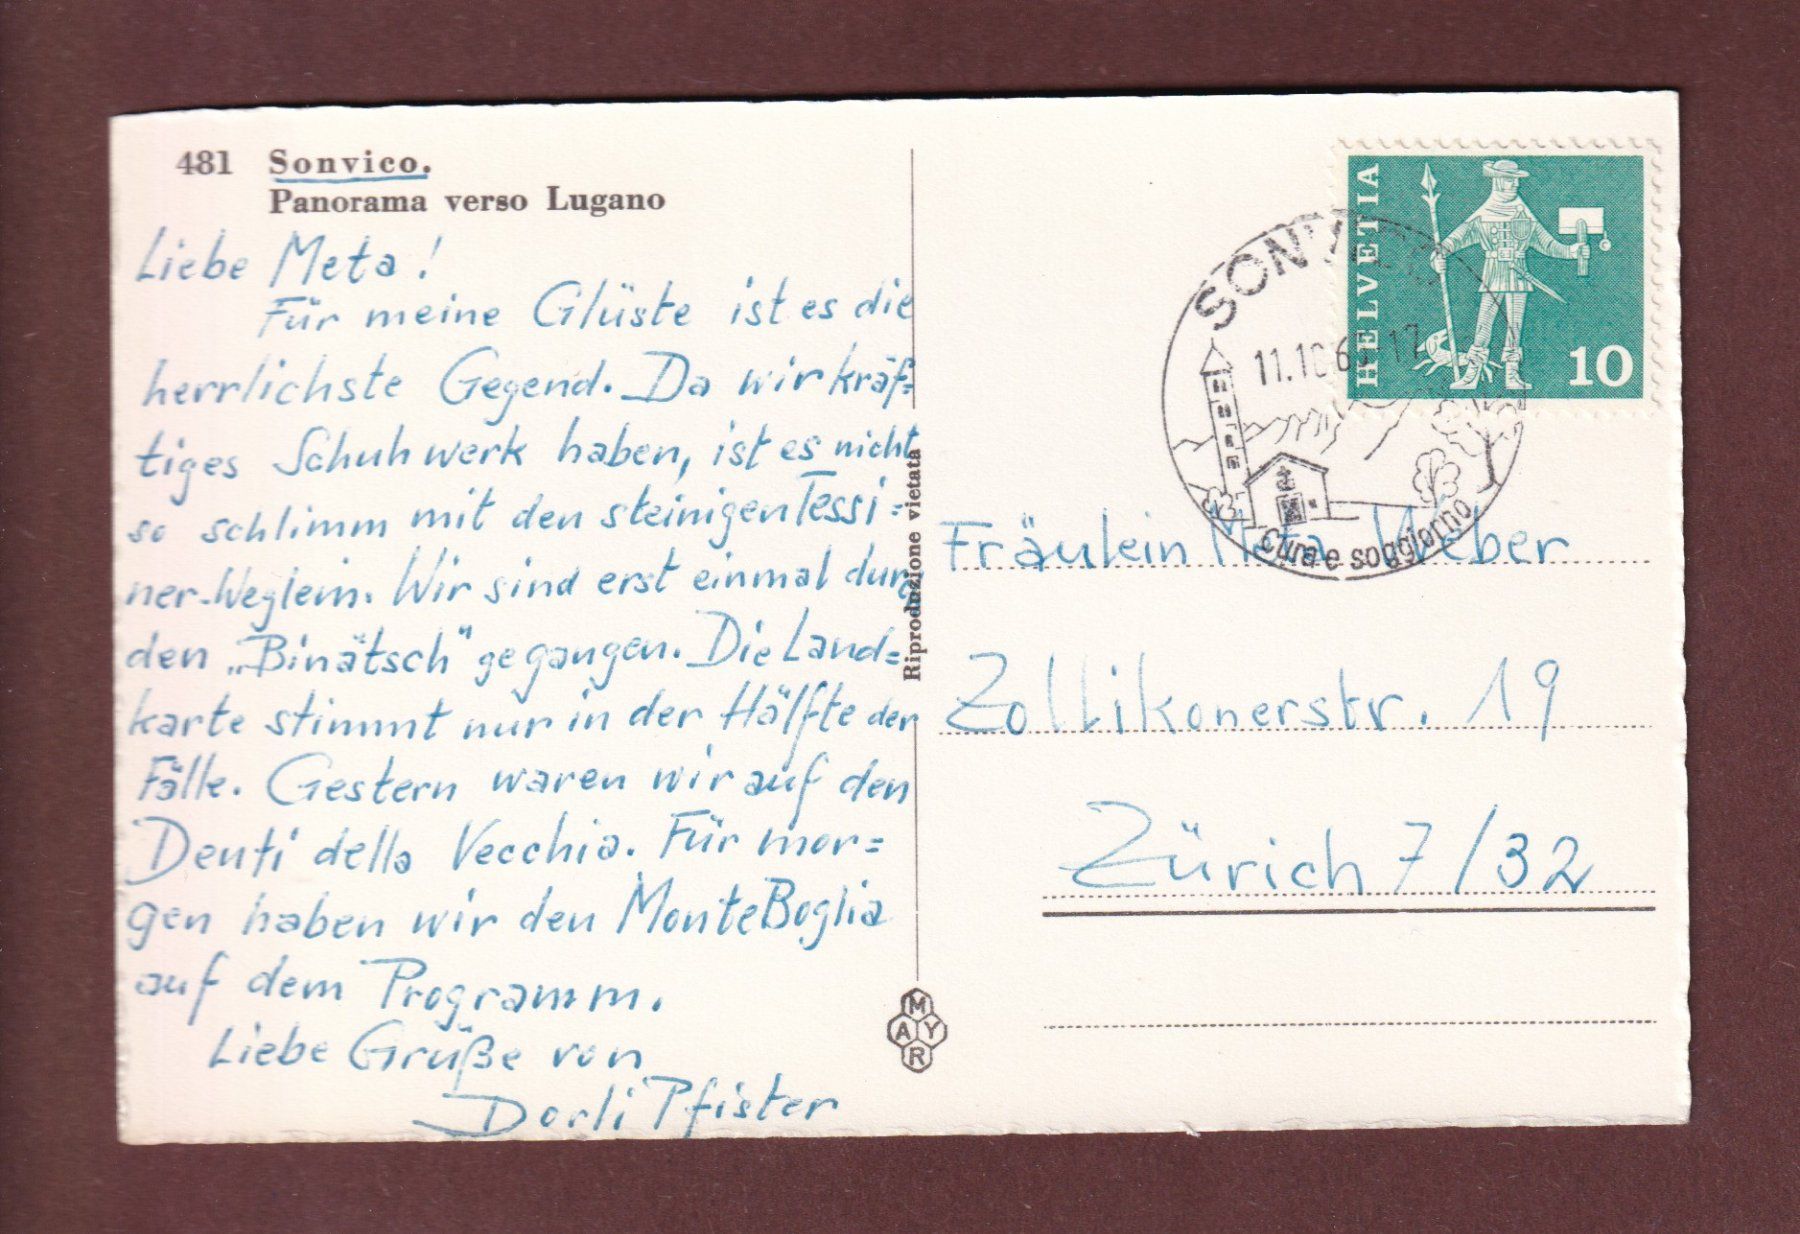 481 Sonvico.
Panorama verso Lugano
Liebe Meta!
Für meine Glüste ist es die
herrlichste Gegend. Da wir kräf=
tiges Schuhwerk haben, ist es nicht
so schlimm mit den steinigen Tessi=
ner-Weglein. Wir sind erst einmal durch
den „Binätsch" gegangen. Die Land=
karte stimmt nur in der Hälfte der
Fälle. Gestern waren wir auf den
Denti della Vecchia. Für mor=
gen haben wir den Monte Boglia
auf dem Programm.
Liebe Grüße von
Dorli Pfister
Riproduzione vietata
MAYR
HELVETIA
10
11.10.6 17
cura e soggiorno
Fräulein Meta Weber
Zollikonerstr. 19
Zürich 7/32